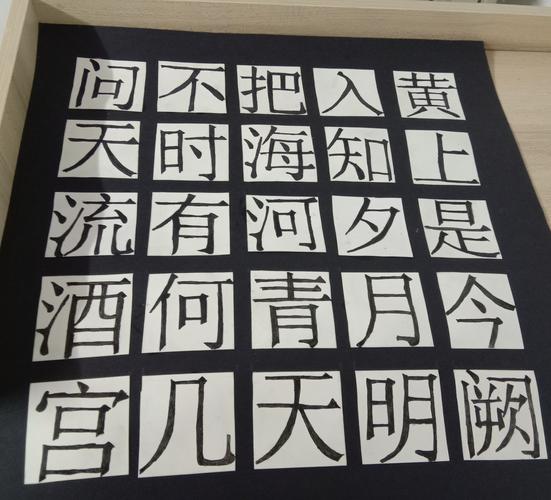 问不把入黄
天时海知上
流有河夕是
酒何青月今
宫几天明阙